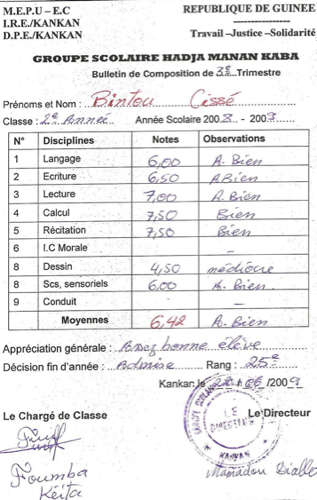 M.E.P.U – E.C REPUBLIQUE DE GUINEE
I.R.E./KANKAN ---------------
D.P.E./KANKAN Travail –Justice –Solidarité
GROUPE SCOLAIRE HADJA MANAN KABA
Bulletin de Composition de 3è Trimestre
Prénoms et Nom : Bintou Cissé
Classe : 2è Année Année Scolaire 2008 - 2009
N° Disciplines Notes Observations
1 Langage 6,00 A. Bien
2 Ecriture 6,50 A Bien
3 Lecture 7,00 A. Bien
4 Calcul 7,50 Bien
5 Récitation 7,50 Bien
6 I.C Morale –
8 Dessin 4,50 médiocre
8 Scs, sensoriels 6,00 A. Bien
9 Conduit –
Moyennes 6,42 A. Bien
Appréciation générale : Assez bonne élève
Décision fin d'année : Admise Rang : 25è
Kankan le /06/2009
Le Chargé de Classe Le Directeur
LE
DIRECTEUR
KANKAN
Foumba
Keita
Mamadou Diallo